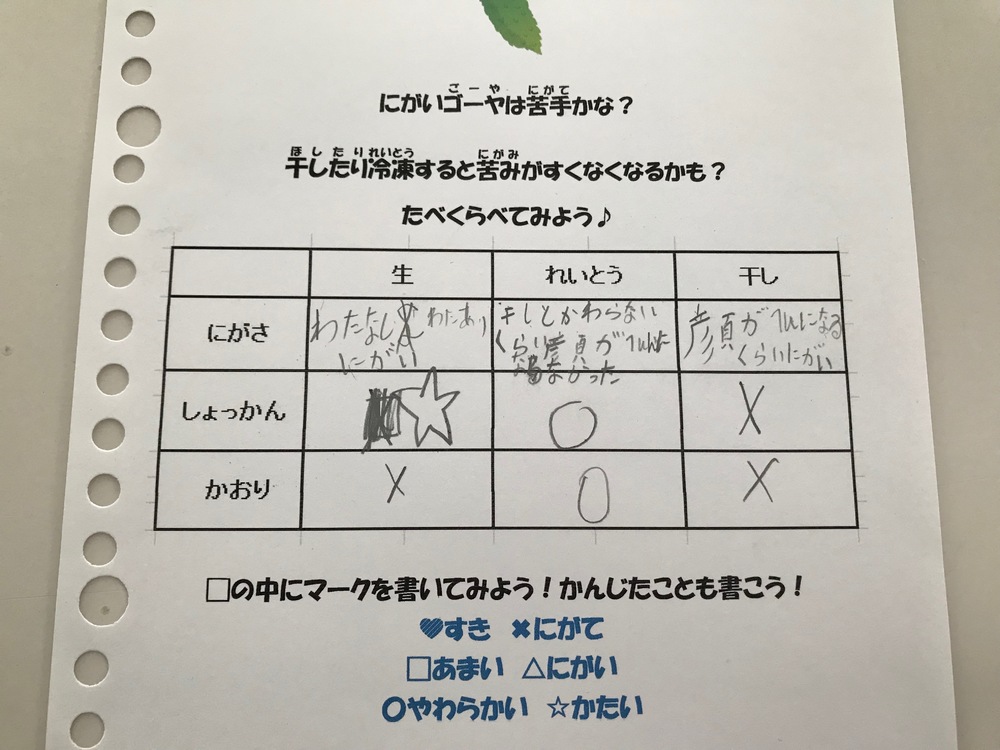 にがいゴーヤは苦手かな？
干したり冷凍すると苦みがすくなくなるかも？
たべくらべてみよう♪
生 れいとう 干し
にがさ わたなし わたあり にがい 干しとかわらないくらい顔が なるなかった 顔が になるくらいにがい
しょっかん ☆ ○ ×
かおり × ○ ×
□の中にマークを書いてみよう！かんじたことも書こう！
♥すき ✖にがて
□あまい △にがい
○やわらかい ☆かたい